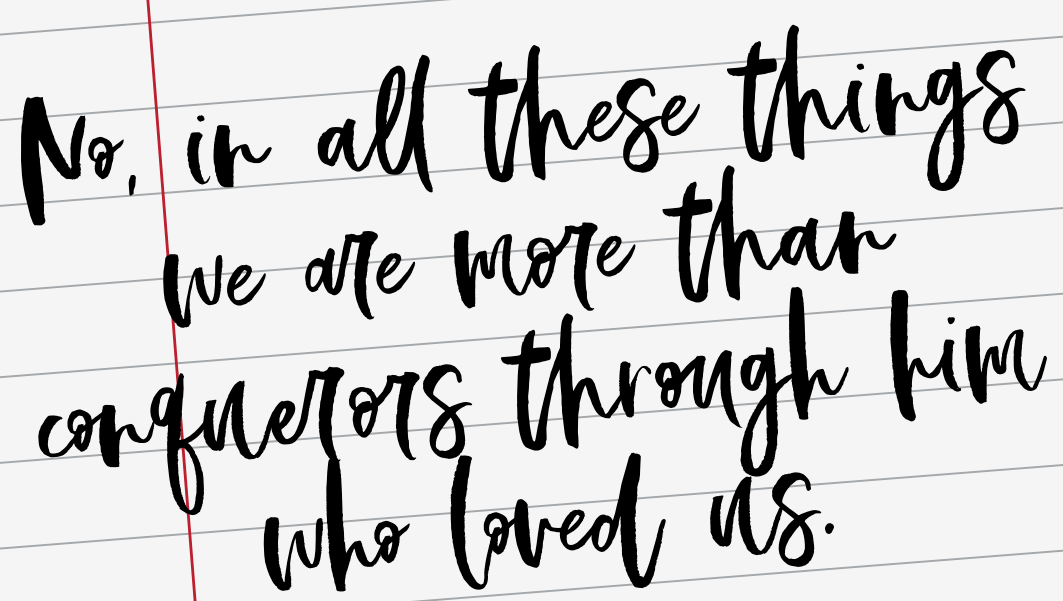 No, in all these things
we are more than
conquerors through him
who loved us.